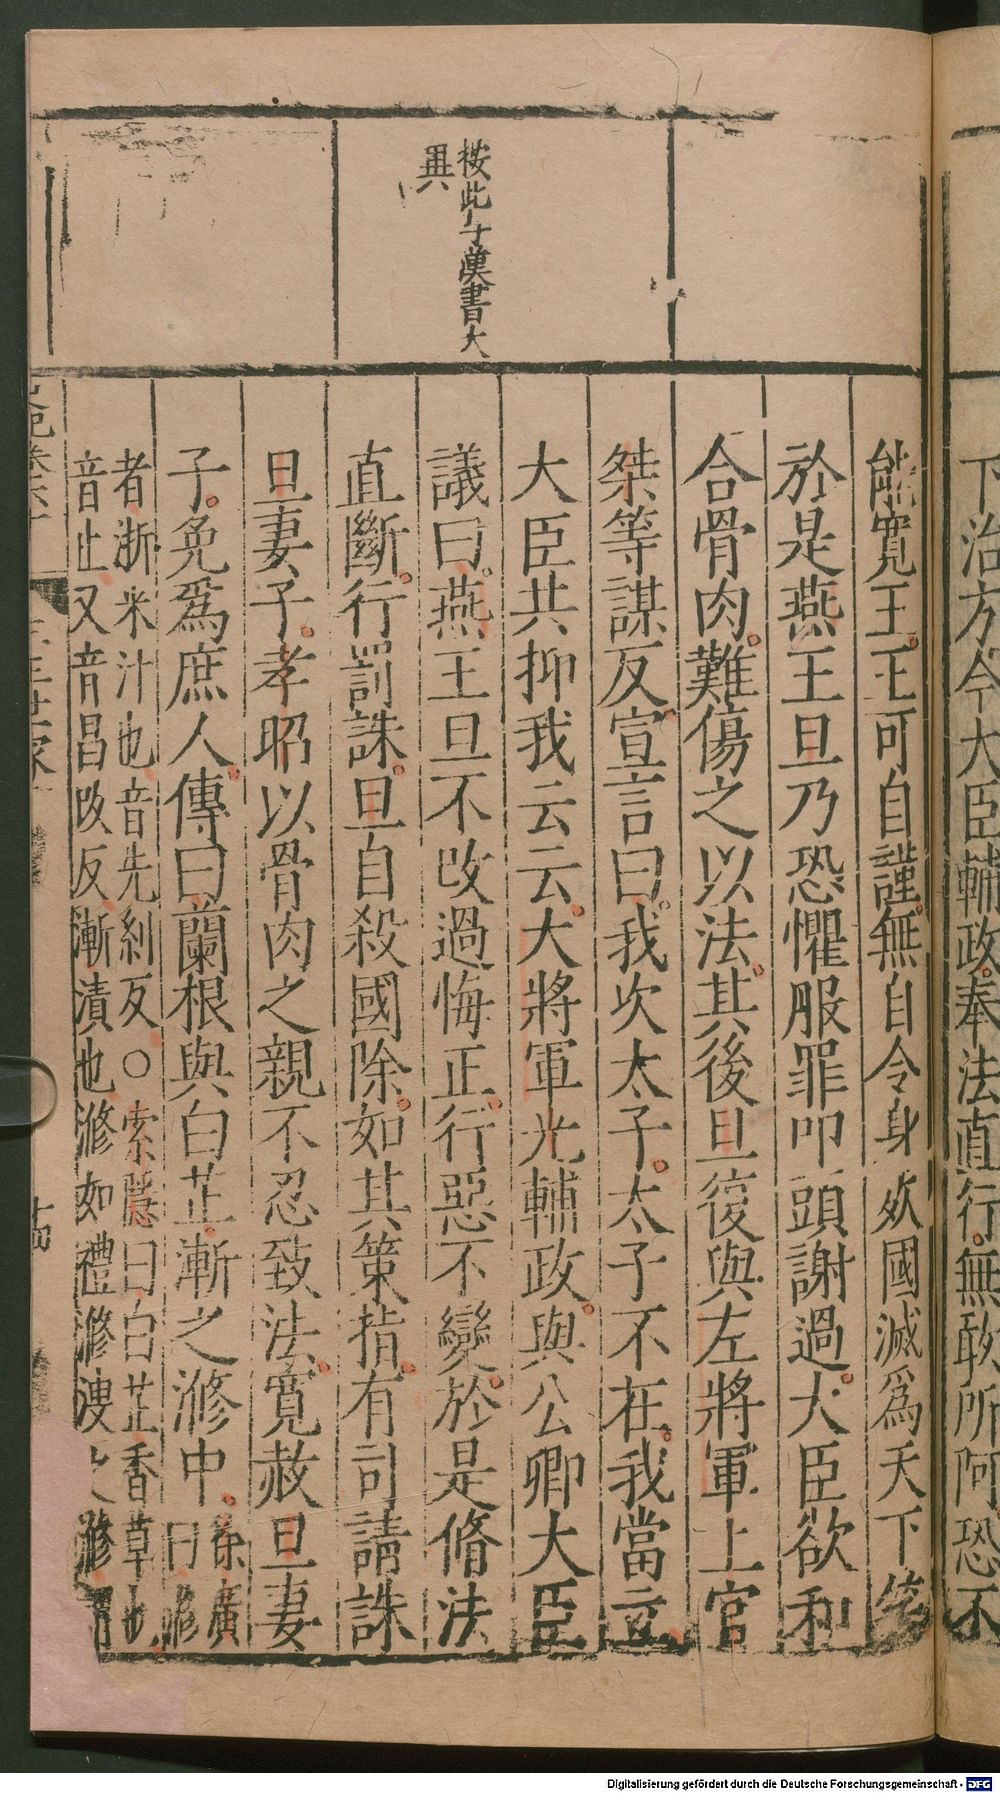 下治方今大臣輔政奉法直行無敢所阿恐不
按此与漢書大
異
能寬王王可自謹無自令身死國滅爲天下笑
於是燕王旦乃恐懼服罪叩頭謝過大臣欲和
合骨肉難傷之以法其後旦復與左將軍上官
桀等謀反宣言曰我次太子太子不在我當立
大臣共抑我云云大將軍光輔政與公卿大臣
議曰燕王旦不改過悔正行惡不變於是脩法
直斷行罰誅旦自殺國除如其策指有司請誅
旦妻子孝昭以骨肉之親不忍致法寬赦旦妻
子免爲庶人傳曰蘭根與白芷漸之滫中徐廣
曰滫
者淅米汁也音先糾反○索隱曰白芷香草也
音止又音昌改反漸漬也滫如禮滫溲之滫
史記卷六十 三王世家 十四
Digitalisierung gefördert durch die Deutsche Forschungsgemeinschaft - DFG